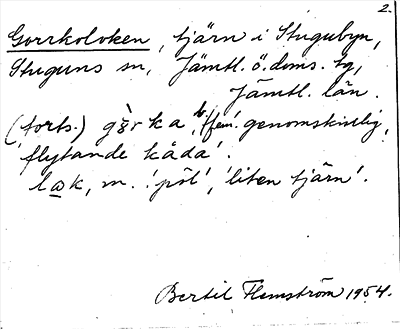 2.
Gorrkoloken, tjärn i Stugubyn,
Stuguns sn, Jämtl. ö. doms. tg,
Jämtl. län.
(forts.) gòrka, f. 'genomskinlig,
flytande kåda'.
lok, m. 'pöl', 'liten tjärn'.
Bertil Flemström 1954.